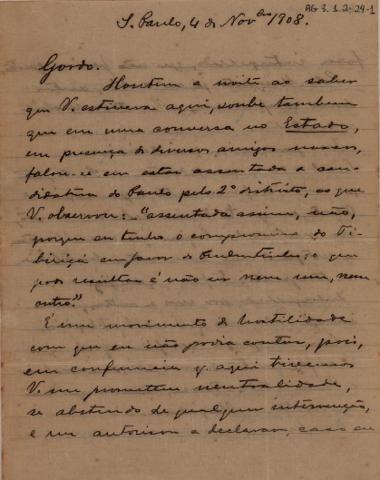 AG 3.1.2-24-1
S. Paulo, 4 de Novbro 1908.
Gordo.
Hontem a noite ao saber
que V. estivera aqui, soube tambem
que em uma conversa no Estado,
em presença de diversos amigos nossos,
falou-se em estar assentada a can-
didatura do Paulo pelo 2º districto, ao que
V. observou: "assentada assim, não,
porque eu tenho o compromisso do Ti-
biriçá em favor do Prudentinho; o que
pode resultar é não ir nem um, nem
outro."
É um movimento de hostilidade
com que eu não podia contar, pois,
em conferencia q. aqui tivemos
V. me prometteu neutralidade,
se abstendo de qualquer intervenção,
e me autorisou a declarar, caso eu